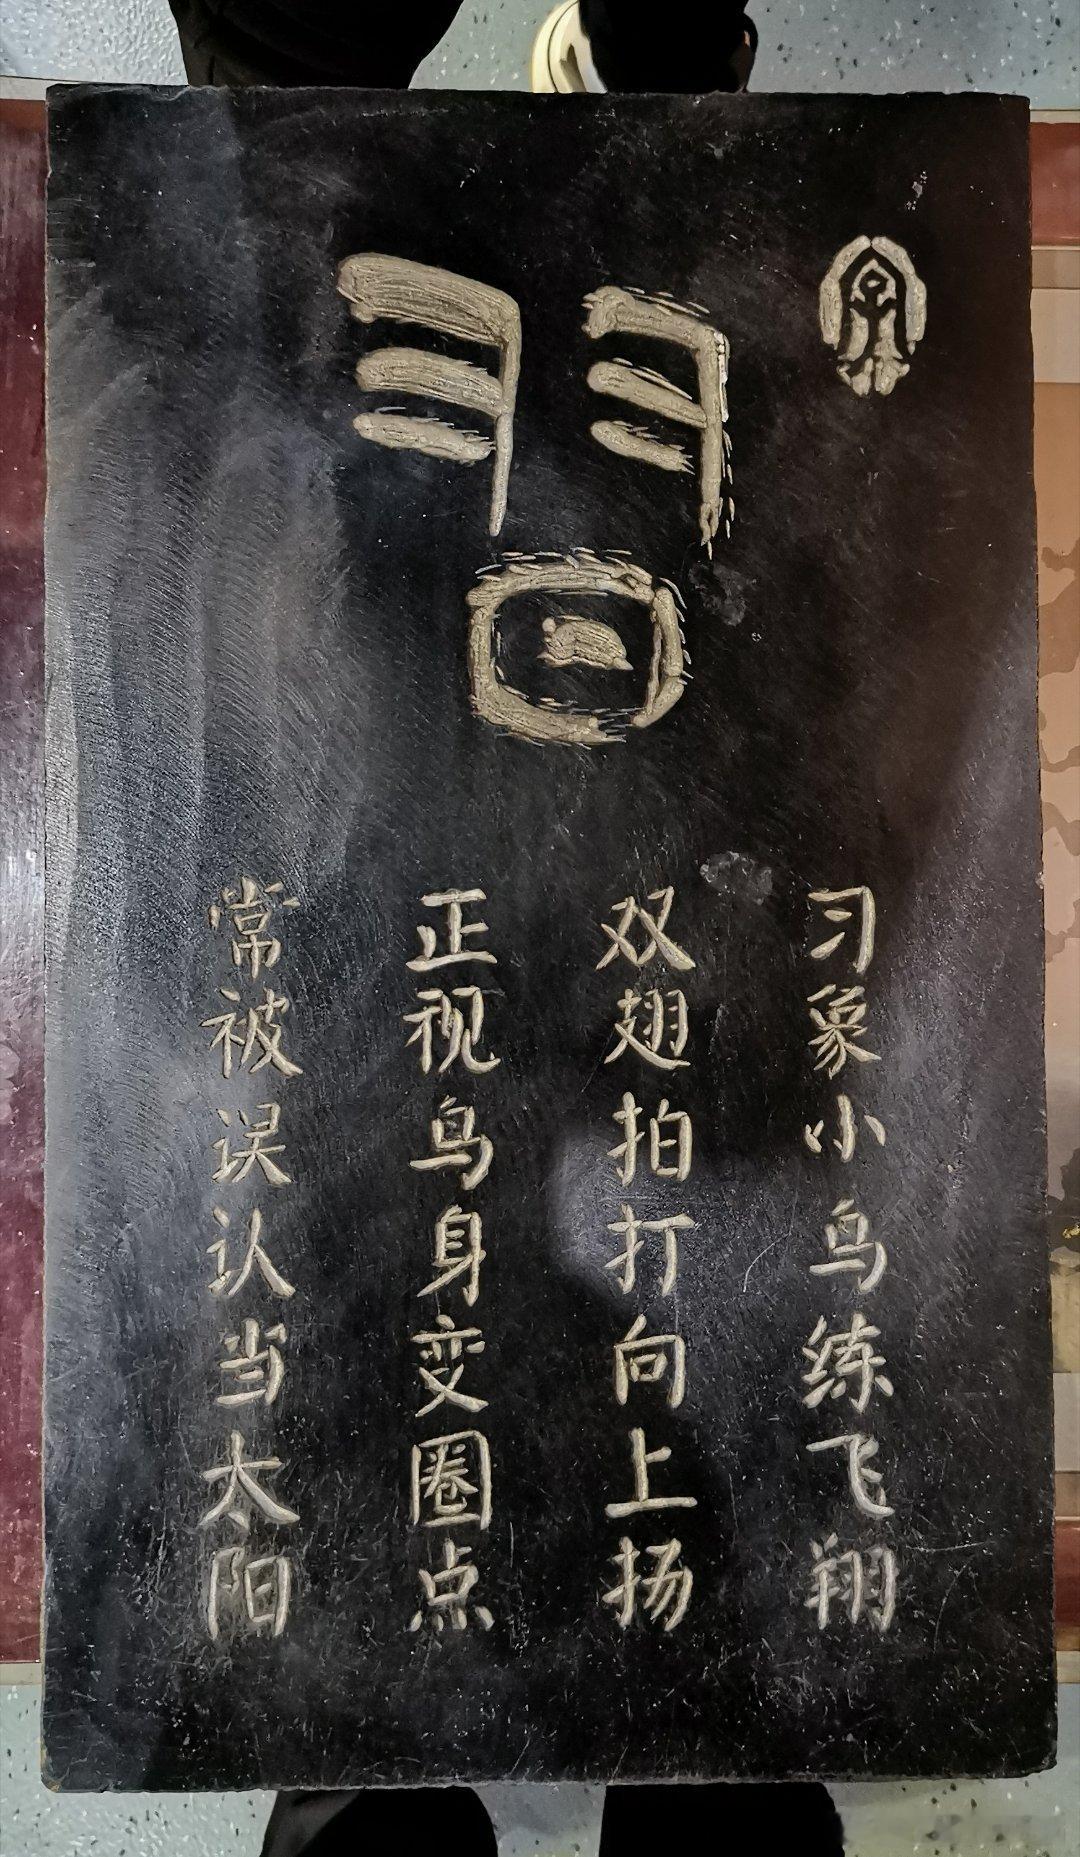 習
习象小鸟练飞翔
双翅拍打向上扬
正视鸟身变圈点
常被误认当太阳